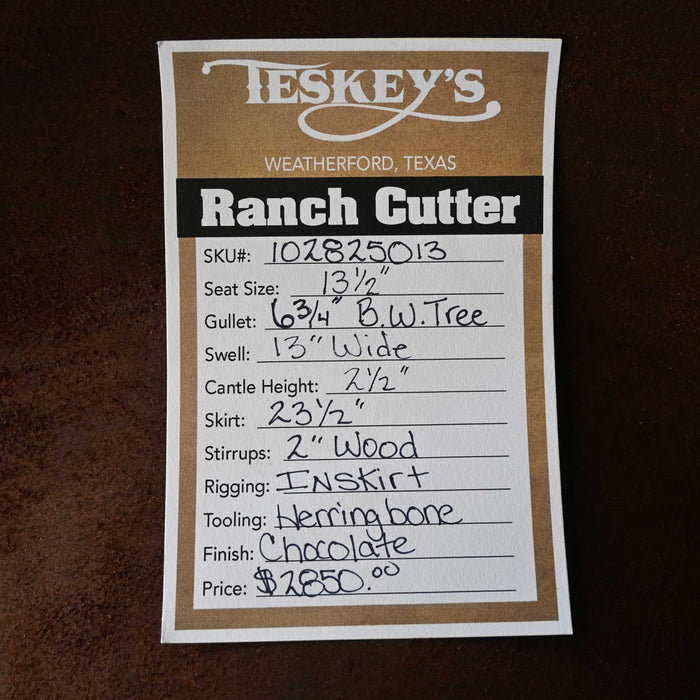 TESKEY'S
WEATHERFORD, TEXAS
Ranch Cutter
SKU#: 102825013
Seat Size: 13 1/2"
Gullet: 6 3/4" B.W. Tree
Swell: 13" Wide
Cantle Height: 2 1/2"
Skirt: 23 1/2"
Stirrups: 2" Wood
Rigging: INSKirt
Tooling: Herringbone
Finish: Chocolate
Price: $2850.00